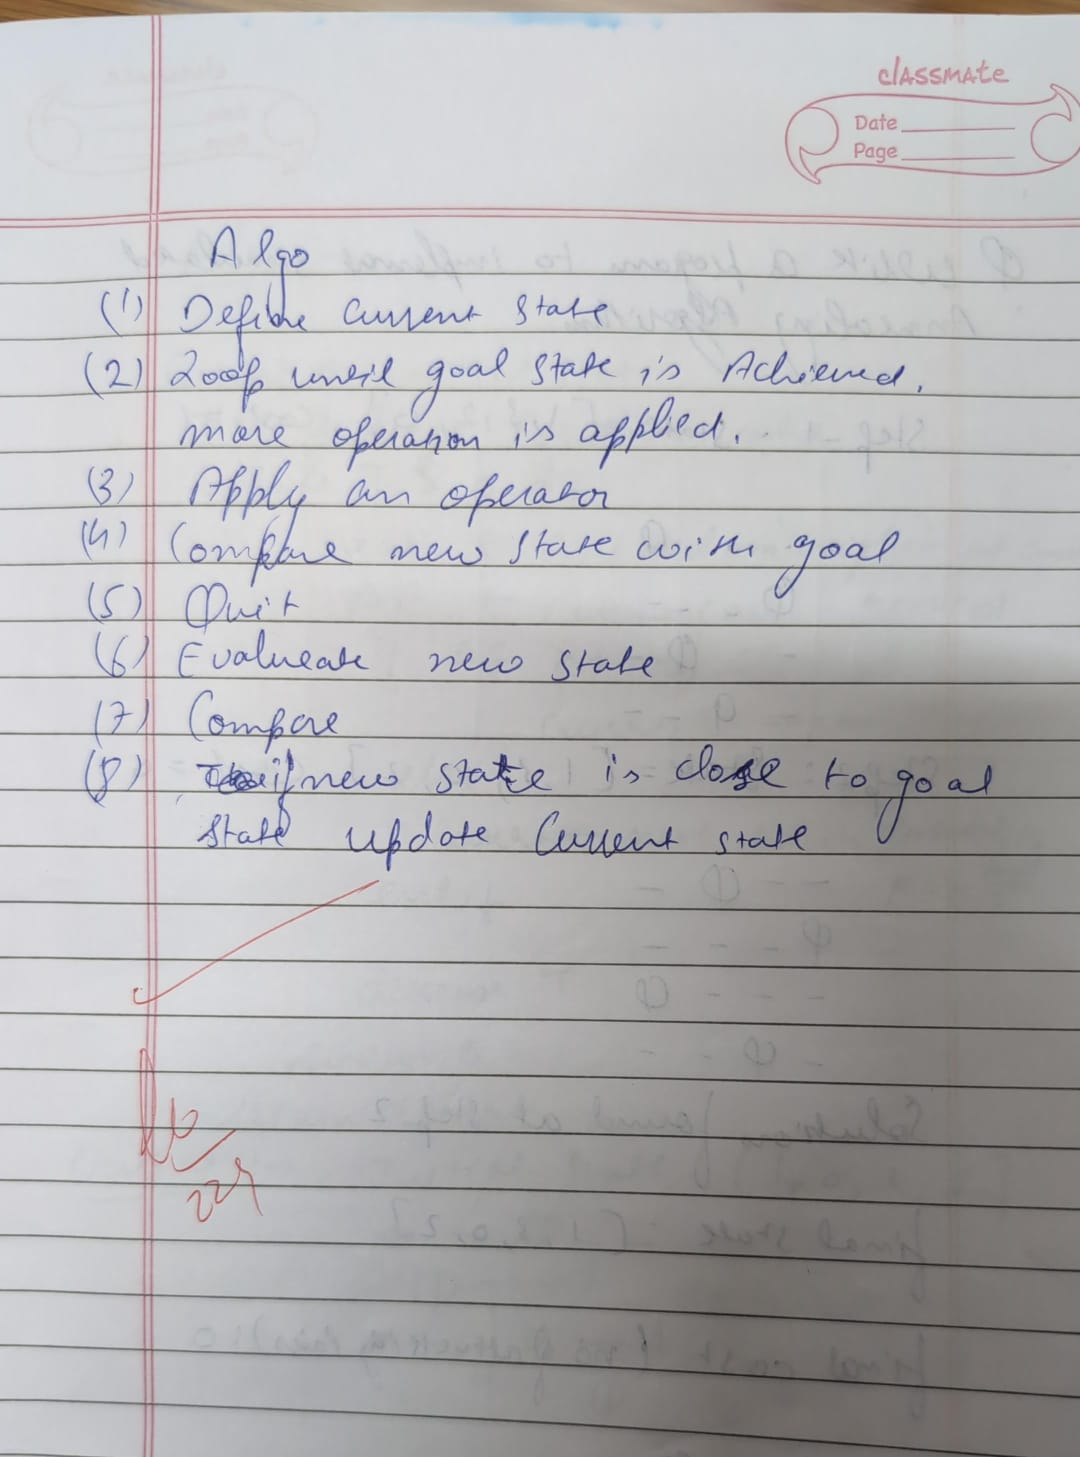 classmate
Date
Page
Algo
(1) Define Current State
(2) Loop until goal State is Achieved,
more operation is applied.
(3) Apply an operator
(4) Compare new State with goal
(5) Quit
(6) Evalueate new State
(7) Compare
(8) if new state is close to goal
State update Current state